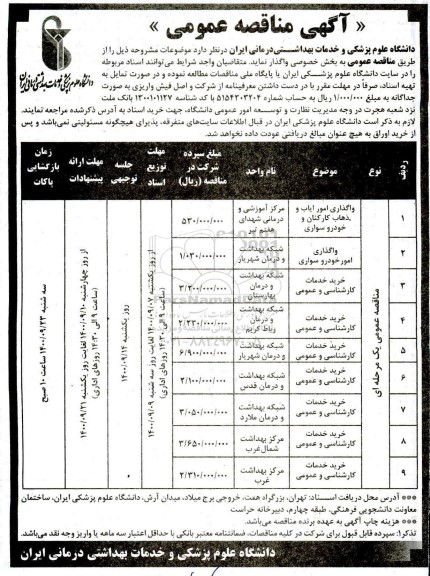 « آگهی مناقصه عمومی »
دانشگاه علوم پزشکی و خدمات بهداشتی درمانی ایران درنظر دارد موضوعات مشروحه ذیل را از
طریق مناقصه عمومی به بخش خصوصی واگذار نماید. متقاضیان واجد شرایط می‌توانند اسناد مربوطه
را در سایت دانشگاه علوم پزشکی ایران یا پایگاه ملی مناقصات مطالعه نموده و در صورت تمایل به
تهیه اسناد، صرفاً در مهلت مقرر با در دست داشتن معرفینامه از شرکت و اصل فیش واریزی به صورت
جداگانه به مبلغ ۱/۰۰۰/۰۰۰ ریال به حساب شماره ۵۱۵۴۲۰۳۲۰۴ با کد شناسه ۱۳۰۰۱۰۱۱۲۷ بانک ملت
نزد شعبه هجرت در وجه مدیریت نظارت و توسعه امور عمومی دانشگاه، جهت خرید اسناد به آدرس ذکرشده مراجعه نمایند.
لازم به ذکر است دانشگاه علوم پزشکی ایران در قبال اطلاعات سایت‌های متفرقه، پذیرای هیچگونه مسئولیتی نمی‌باشد و پس
از خرید اوراق به هیچ عنوان مبالغ دریافتی عودت داده نخواهد شد.
ردیف نوع موضوع نام واحد مبلغ سپرده شرکت در مناقصه (ریال) مهلت توزیع اسناد جلسه توجیهی مهلت ارائه پیشنهادات زمان بازگشایی پاکات
مناقصه عمومی یک مرحله ای
۱ واگذاری امور ایاب و ذهاب کارکنان و خودرو سواری مرکز آموزشی و درمانی شهدای هفتم تیر ۵۳۰/۰۰۰/۰۰۰
۲ واگذاری امور خودرو سواری شبکه بهداشت و درمان شهریار ۱/۰۳۰/۰۰۰/۰۰۰
۳ خرید خدمات کارشناسی و عمومی شبکه بهداشت و درمان بهارستان ۳/۲۰۰/۰۰۰/۰۰۰
۴ خرید خدمات کارشناسی و عمومی شبکه بهداشت و درمان رباط کریم
۵ خرید خدمات کارشناسی و عمومی شبکه بهداشت و درمان شهریار ۶/۹۰۰/۰۰۰/۰۰۰
۶ خرید خدمات کارشناسی و عمومی شبکه بهداشت و درمان قدس ۲/۱۰۰/۰۰۰/۰۰۰
۷ خرید خدمات کارشناسی و عمومی شبکه بهداشت و درمان ملارد ۳/۰۵۰/۰۰۰/۰۰۰
۸ خرید خدمات کارشناسی و عمومی مرکز بهداشت شمال غرب ۳/۶۵۰/۰۰۰/۰۰۰
۹ خرید خدمات کارشناسی و عمومی مرکز بهداشت غرب ۲/۳۱۰/۰۰۰/۰۰۰
از روز یکشنبه ۱۴۰۰/۰۹/۰۷ لغایت روز سه شنبه ۱۴۰۰/۰۹/۰۹
(ساعت ۹ الی ۱۴:۳۰ روزهای اداری)
روز یکشنبه ۱۴۰۰/۰۹/۱۴
از روز چهارشنبه ۱۴۰۰/۰۹/۱۰ لغایت روز یکشنبه ۱۴۰۰/۰۹/۲۱
(ساعت ۹ الی ۱۴:۳۰ روزهای اداری)
سه شنبه ۱۴۰۰/۰۹/۲۳ ساعت ۱۰ صبح
*** آدرس محل دریافت اسناد: تهران، بزرگراه همت، خروجی برج میلاد، میدان آرش، دانشگاه علوم پزشکی ایران، ساختمان
معاونت دانشجویی فرهنگی، طبقه چهارم، دبیرخانه حراست
*** هزینه چاپ آگهی به عهده برنده مناقصه می‌باشد.
تذکر۱: سپرده قابل قبول برای شرکت در کلیه مناقصات، ضمانتنامه معتبر بانکی با حداقل اعتبار سه ماهه یا واریز وجه نقد می‌باشد.
دانشگاه علوم پزشکی و خدمات بهداشتی درمانی ایران